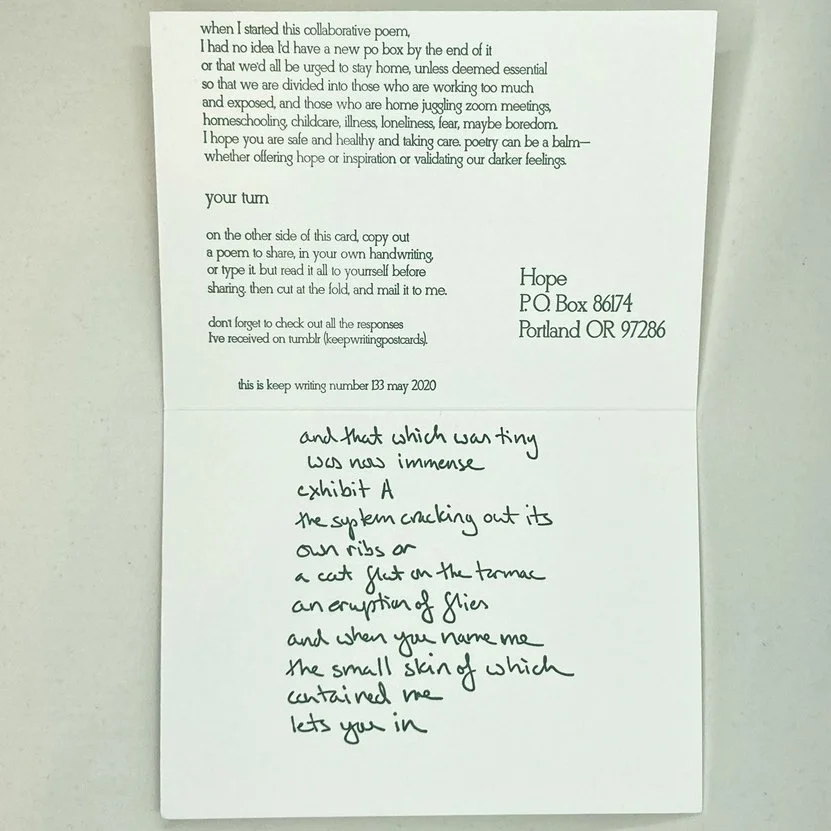 when I started this collaborative poem,
I had no idea I'd have a new po box by the end of it
or that we'd all be urged to stay home, unless deemed essential
so that we are divided into those who are working too much
and exposed, and those who are home juggling zoom meetings,
homeschooling, childcare, illness, loneliness, fear, maybe boredom.
I hope you are safe and healthy and taking care. poetry can be a balm—
whether offering hope or inspiration or validating our darker feelings.
your turn
on the other side of this card, copy out
a poem to share, in your own handwriting,
or type it. but read it all to yourself before
sharing. then cut at the fold, and mail it to me.
don't forget to check out all the responses
I've received on tumblr (keepwritingpostcards).
this is keep writing number 133 may 2020
Hope
P.O. Box 86174
Portland OR 97286
and that which was tiny
was now immense
exhibit A
the system cracking out its
own ribs or
a cat flat on the tarmac
an eruption of flies
and when you name me
the small skin of which
contained me
lets you in